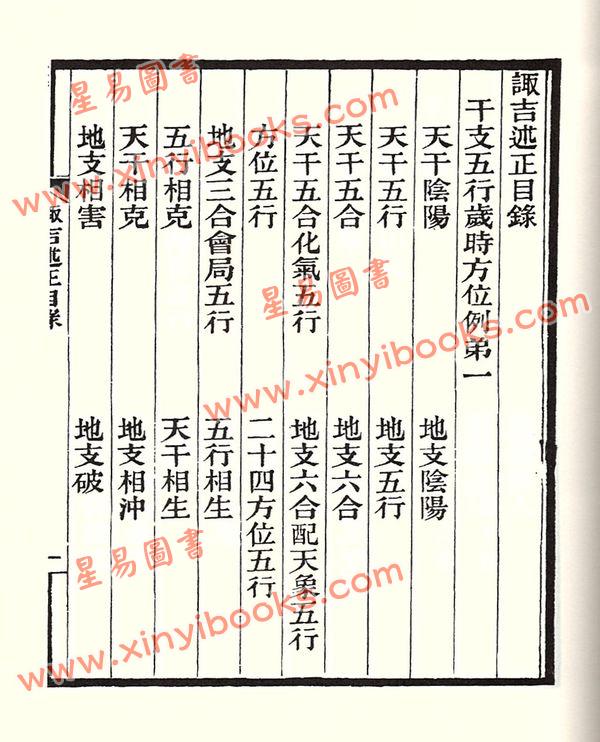 諏吉述正目錄
干支五行歲時方位例第一
天干陰陽
地支陰陽
天干五行
地支五行
天干五合
地支六合
天干五合化氣五行
地支六合配天象五行
方位五行
二十四方位五行
地支三合會局五行
五行相生
五行相克
天干相生
天干相克
地支相沖
地支相害
地支破
諏吉述正目錄
一
星易圖書
www.xinyibooks.com
星易圖書
www.xinyibooks.com
星易圖書
www.xinyibooks.com